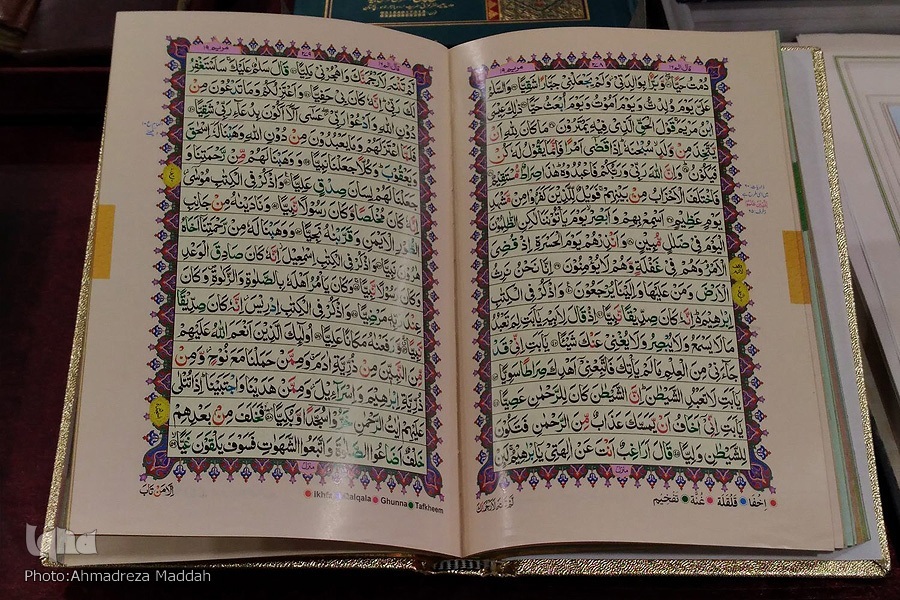 قال الم ١٦
مريم ١٩
دُمْتُ حَيًّا وَّبَرًّا بِوَالِدَتِيْ وَلَمْ يَجْعَلْنِيْ جَبَّارًا شَقِيًّا وَالسَّلٰمُ
عَلَيَّ يَوْمَ وُلِدْتُّ وَيَوْمَ اَمُوْتُ وَيَوْمَ اُبْعَثُ حَيًّا ذٰلِكَ عِيْسَى
ابْنُ مَرْيَمَ قَوْلَ الْحَقِّ الَّذِيْ فِيْهِ يَمْتَرُوْنَ مَا كَانَ لِلّٰهِ اَنْ
يَّتَّخِذَ مِنْ وَّلَدٍ سُبْحٰنَهٗ اِذَا قَضٰى اَمْرًا فَاِنَّمَا يَقُوْلُ لَهٗ كُنْ
فَيَكُوْنُ وَاِنَّ اللّٰهَ رَبِّيْ وَرَبُّكُمْ فَاعْبُدُوْهُ هٰذَا صِرَاطٌ مُّسْتَقِيْمٌ
فَاخْتَلَفَ الْاَحْزَابُ مِنْ بَيْنِهِمْ فَوَيْلٌ لِّلَّذِيْنَ كَفَرُوْا مِنْ مَّشْهَدِ
يَوْمٍ عَظِيْمٍ اَسْمِعْ بِهِمْ وَاَبْصِرْ يَوْمَ يَاْتُوْنَنَا لٰكِنِ الظّٰلِمُوْنَ
الْيَوْمَ فِيْ ضَلٰلٍ مُّبِيْنٍ وَاَنْذِرْهُمْ يَوْمَ الْحَسْرَةِ اِذْ قُضِيَ
الْاَمْرُ وَهُمْ فِيْ غَفْلَةٍ وَّهُمْ لَا يُؤْمِنُوْنَ اِنَّا نَحْنُ نَرِثُ
الْاَرْضَ وَمَنْ عَلَيْهَا وَاِلَيْنَا يُرْجَعُوْنَ وَاذْكُرْ فِي الْكِتٰبِ
اِبْرٰهِيْمَ اِنَّهٗ كَانَ صِدِّيْقًا نَّبِيًّا اِذْ قَالَ لِاَبِيْهِ يٰٓاَبَتِ لِمَ تَعْبُدُ
مَا لَا يَسْمَعُ وَلَا يُبْصِرُ وَلَا يُغْنِيْ عَنْكَ شَيْئًا يٰٓاَبَتِ اِنِّيْ قَدْ
جَآءَنِيْ مِنَ الْعِلْمِ مَا لَمْ يَاْتِكَ فَاتَّبِعْنِيْٓ اَهْدِكَ صِرَاطًا سَوِيًّا
يٰٓاَبَتِ لَا تَعْبُدِ الشَّيْطٰنَ اِنَّ الشَّيْطٰنَ كَانَ لِلرَّحْمٰنِ عَصِيًّا
يٰٓاَبَتِ اِنِّيْٓ اَخَافُ اَنْ يَّمَسَّكَ عَذَابٌ مِّنَ الرَّحْمٰنِ فَتَكُوْنَ
لِلشَّيْطٰنِ وَلِيًّا قَالَ اَرَاغِبٌ اَنْتَ عَنْ اٰلِهَتِيْ يٰٓاِبْرٰهِيْمُ لَئِنْ
منزل
اِخفَا قَلقَلَة غُنَّة تَفخِيم
قال الم ١٦
مريم ١٩
لَّمْ تَنْتَهِ لَاَرْجُمَنَّكَ وَاهْجُرْنِيْ مَلِيًّا قَالَ سَلٰمٌ عَلَيْكَ سَاَسْتَغْفِرُ
لَكَ رَبِّيْ اِنَّهٗ كَانَ بِيْ حَفِيًّا وَاَعْتَزِلُكُمْ وَمَا تَدْعُوْنَ مِنْ
دُوْنِ اللّٰهِ وَاَدْعُوْا رَبِّيْ عَسٰٓى اَلَّآ اَكُوْنَ بِدُعَآءِ رَبِّيْ شَقِيًّا
فَلَمَّا اعْتَزَلَهُمْ وَمَا يَعْبُدُوْنَ مِنْ دُوْنِ اللّٰهِ وَهَبْنَا لَهٗٓ اِسْحٰقَ
وَيَعْقُوْبَ وَكُلًّا جَعَلْنَا نَبِيًّا وَوَهَبْنَا لَهُمْ مِّنْ رَّحْمَتِنَا وَ
جَعَلْنَا لَهُمْ لِسَانَ صِدْقٍ عَلِيًّا وَاذْكُرْ فِي الْكِتٰبِ مُوْسٰٓى
اِنَّهٗ كَانَ مُخْلَصًا وَّكَانَ رَسُوْلًا نَّبِيًّا وَنَادَيْنٰهُ مِنْ جَانِبِ
الطُّوْرِ الْاَيْمَنِ وَقَرَّبْنٰهُ نَجِيًّا وَوَهَبْنَا لَهٗ مِنْ رَّحْمَتِنَآ اَخَاهُ
هٰرُوْنَ نَبِيًّا وَاذْكُرْ فِي الْكِتٰبِ اِسْمٰعِيْلَ اِنَّهٗ كَانَ صَادِقَ الْوَعْدِ
وَكَانَ رَسُوْلًا نَّبِيًّا وَكَانَ يَاْمُرُ اَهْلَهٗ بِالصَّلٰوةِ وَالزَّكٰوةِ وَكَانَ
عِنْدَ رَبِّهٖ مَرْضِيًّا وَاذْكُرْ فِي الْكِتٰبِ اِدْرِيْسَ اِنَّهٗ كَانَ صِدِّيْقًا
نَّبِيًّا وَّرَفَعْنٰهُ مَكَانًا عَلِيًّا اُولٰٓئِكَ الَّذِيْنَ اَنْعَمَ اللّٰهُ عَلَيْهِمْ
مِّنَ النَّبِيّٖنَ مِنْ ذُرِّيَّةِ اٰدَمَ وَمِمَّنْ حَمَلْنَا مَعَ نُوْحٍ وَّمِنْ
ذُرِّيَّةِ اِبْرٰهِيْمَ وَاِسْرَآءِيْلَ وَمِمَّنْ هَدَيْنَا وَاجْتَبَيْنَا اِذَا تُتْلٰى
عَلَيْهِمْ اٰيٰتُ الرَّحْمٰنِ خَرُّوْا سُجَّدًا وَّبُكِيًّا فَخَلَفَ مِنْ بَعْدِهِمْ
خَلْفٌ اَضَاعُوا الصَّلٰوةَ وَاتَّبَعُوا الشَّهَوٰتِ فَسَوْفَ يَلْقَوْنَ غَيًّا
منزل
اِلَّا مَنْ تَابَ
Ikhfa Qalqala Ghunna Tafkheem
iqna
Photo:Ahmadreza Maddah